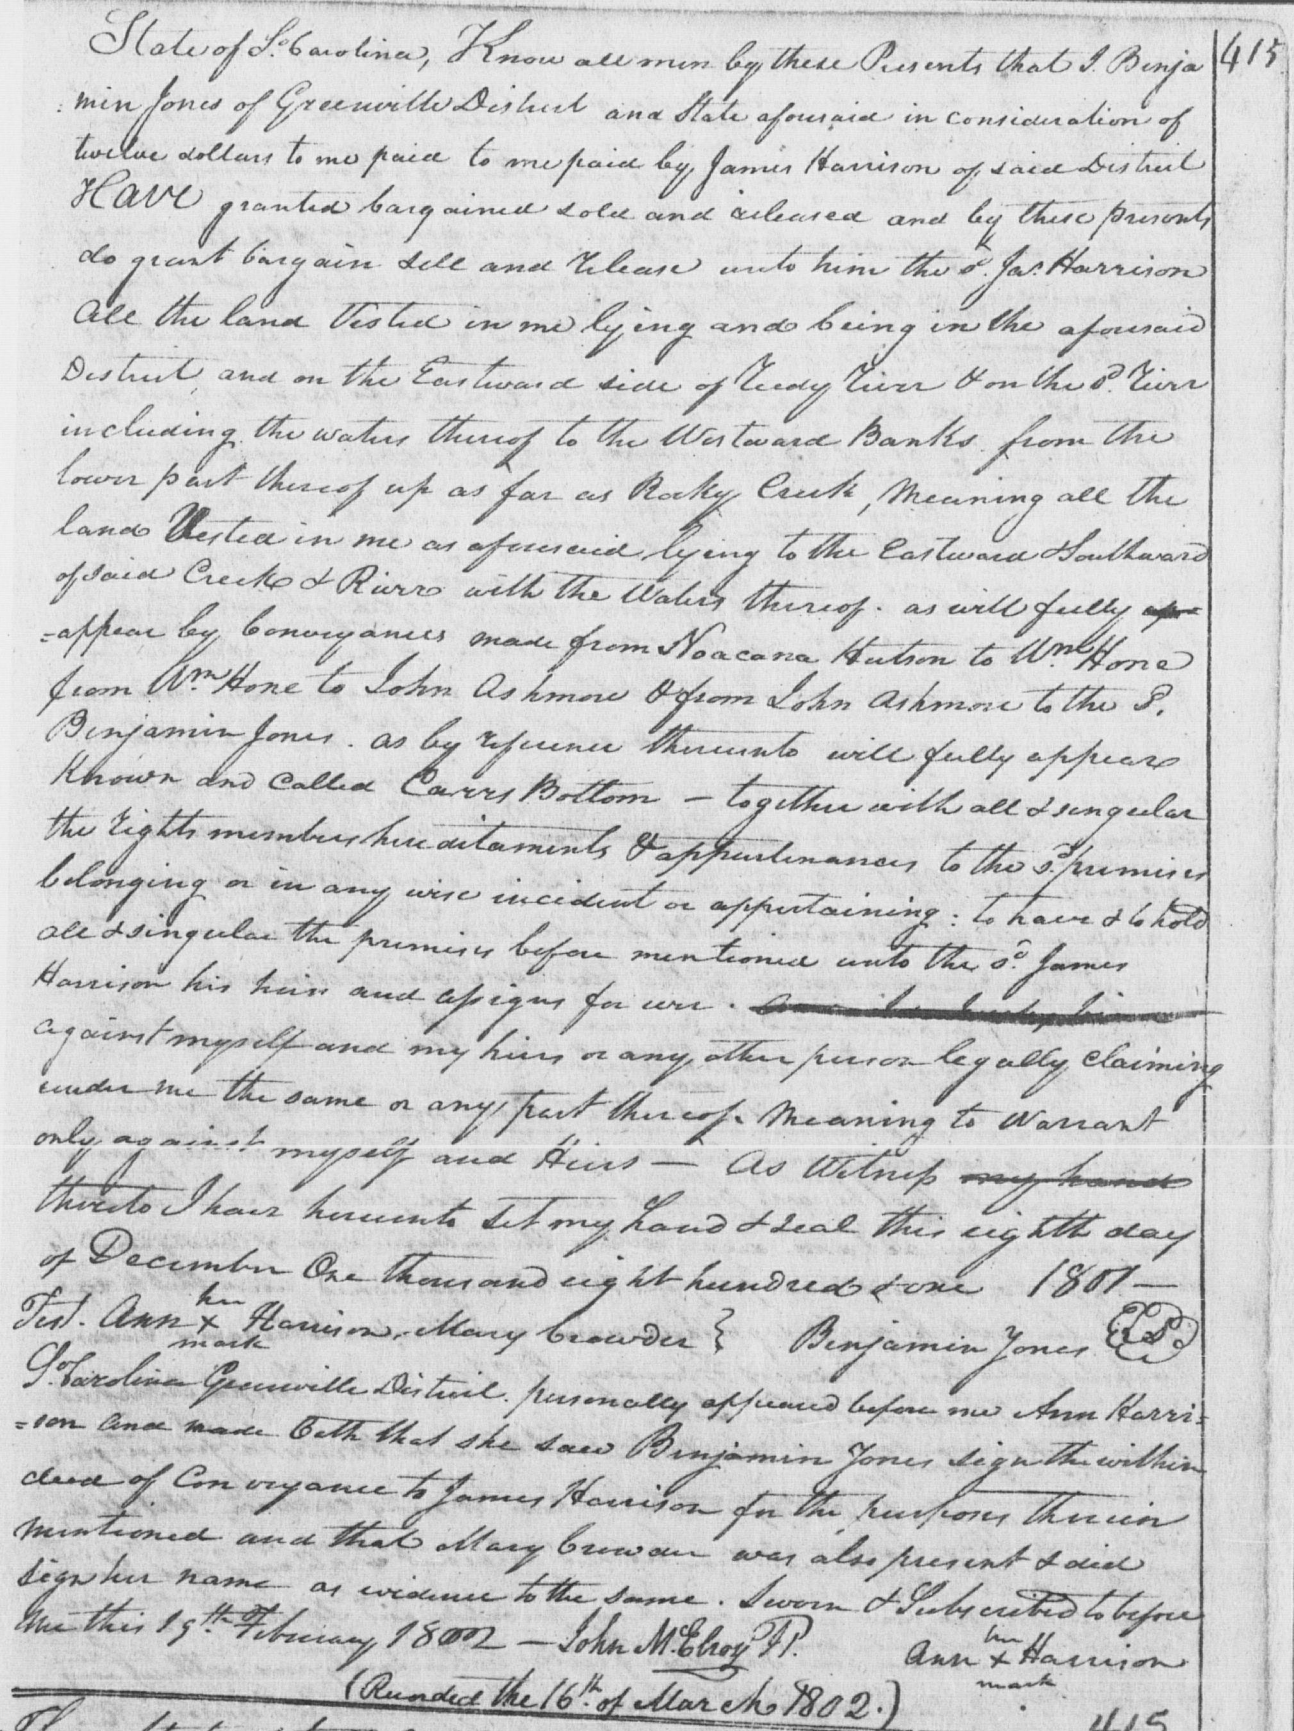 State of So. Carolina, Know all men by these Presents that I. Benja 415
min Jones of Greenville District and State aforesaid in consideration of
twelve dollars to me paid to me paid by James Harrison of said District
Have granted bargained sold and released and by these presents
do grant bargain sell and release unto him the sd. Jas. Harrison
All the land Vested in me lying and being in the aforesaid
District and on the Eastward side of Reedy River & on the sd. River
including the waters thereof to the Westward Banks from the
lower part thereof up as far as Rocky Creek, Meaning all the
land Vested in me as aforesaid lying to the Eastward & Southward
of said Creek & River with the Waters thereof. as will fully
=appear by Conveyances made from Noacana Hutson to Wm. Hone
from Wm. Hone to John Ashmore & from John Ashmore to the S.
Benjamin Jones. as by reference thereunto will fully appear
Known and Called Carrs Bottom – together with all & singular
the rights members hereditaments & appurtenances to the sd. premises
belonging or in any wise incident or appertaining: to have & to hold
all & singular the premises before mentioned unto the sd. James
Harrison his heirs and assigns for ever.
against myself and my hiers or any other person legally Claiming
under me the same or any part thereof. Meaning to Warrant
only against myself and Hiers — As Witness my hand
thereto I have hereunto Set my hand & seal this eighth day
of December One thousand eight hundred & one 1801 —
Test. Ann her x mark Harrison, Mary Crowder } Benjamin Jones LS
So. Carolina Greenville District. personally appeared before me Ann Harri=
=son and made Oath that she saw Benjamin Jones sign the within
deed of Conveyance to James Harrison for the purposes therein
mentioned and that Mary Crowder was also present & did
sign her name as evidence to the same. Sworn & Subscribed to before
me this 19th February 1802 — John McElroy JP. Ann her x mark Harrison
(Recorded the 16th of March 1802.)
415